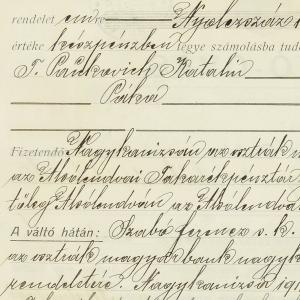 rendelet emre Nyolcszáz
értéke készpénzben tegye számolásba tud
T. Pačkovich Katalin
Páka
Fizetendő Nagykanizsán az osztrák
az Alsólendvai Takarékpénztár
tőleg Alsólendván az Alsólendva
A váltó hátán: Szabó ferencz s. k.
az osztrák magyar bank nagyk
rendeletére. Nagykanizsa 191